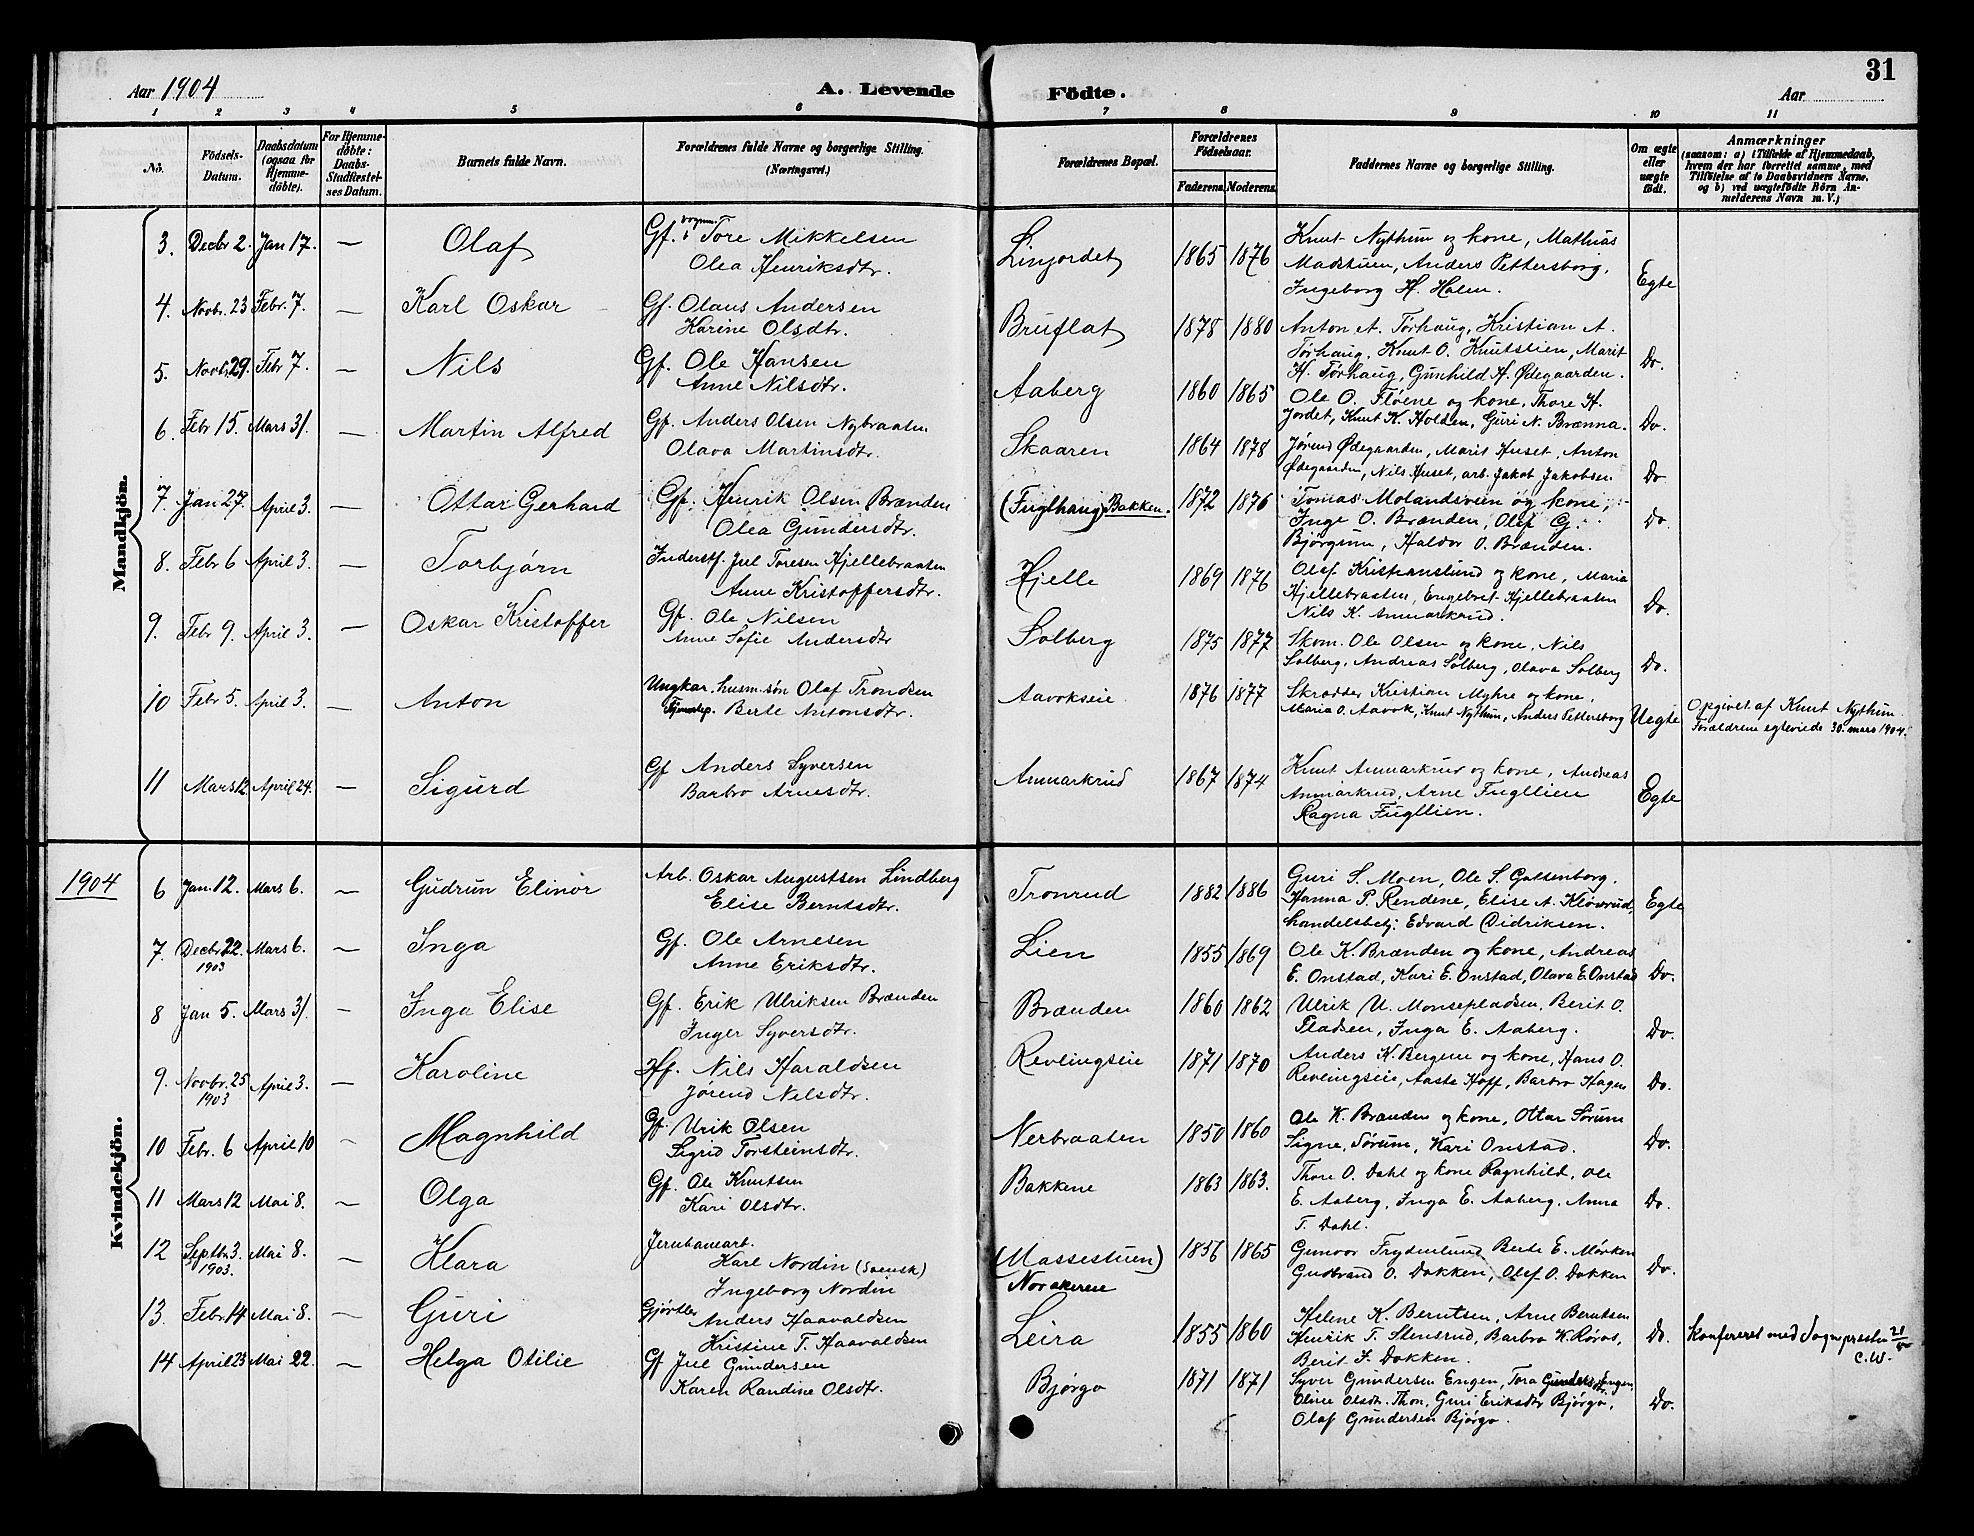 31
Aar 1904 A. Levende Födte. Aar
1 2 3 4 5 6 7 8 9 10 11
No. Födsels-Datum. Daabsdatum (ogsaa for Hjemme-döbte). For Hjemme-döbte: Daabs-Stadfæstel-ses Datum. Barnets fulde Navn. Forældrenes fulde Navne og borgerlige Stilling. (Næringsvei.) Forældrenes Bopæl. Forældrenes Födselsaar. Faderens. Moderens. Faddernes Navne og borgerlige Stilling. Om ægte eller uægte födt. Anmærkninger (saasom: a) i Tilfælde af Hjemmedaab, hvem der har forrettet samme, med Tilföielse af to Daabsvidners Navne, og b) ved uægtefödte Börn An-melderens Navn m. V.)
Mandkjön.
3. Decbr 2. Jan 17. — Olaf Gf. Tore Mikkelsen Linjordet 1865 1876 Knut Nythun og kone, Mathias
Olea Henriksdtr. Madstuen, Anders Pettersborg,
Ingeborg H. Halen. Egte
4. Novbr. 23 Febr. 7. — Karl Oskar Gf. Olaus Andersen Bruflat 1878 1880 Anton A. Torhaug, Kristian A.
Karine Olsdtr. Torhaug, Knut O. Knutslien, Marit
H. Törhaug, Gunhild A. Ødegaarden. Do.
5. Novbr. 29. Febr 7. — Nils Gf. Ole Hansen Aaberg 1860 1865 Ole O. Fløene og kone, Thore H.
Anne Nilsdtr. Jordet, Knut K. Holden, Guri N. Brænna. Do.
6. Febr 15. Mars 31. — Martin Alfred Gf. Anders Olsen Nybraaten Skaaren 1864 1878 Jørend Ødegaarden, Marit Huset, Anton
Olava Martinsdtr. Ødegaarden, Nils Huset, arb. Jakob Jakobsen Do
7. Jan 27. April 3. — Ottar Gerhard Gf. Henrik Olsen Brænden (Fuglhaug) Bakken. 1872 1876 Tomas Molandsvein og kone,
Olea Gundersdtr. Inge O. Brænden, Olef G.
Bjørgum, Haldor O. Brænden. Do.
8. Febr 6 April 3. — Torbjørn Inderstf. Juel Toresen Hjellebraaten Hjelle 1869 1876 Olaf Kristianslund og kone, Maria
Anne Kristoffersdtr. Hjellebraaten, Engebret Hjellebraaten
Nils K. Anmarkrud. Do.
9. Febr 9. April 3. — Oskar Kristoffer Gf. Ole Nilsen Solberg 1875 1877 Skom. Ole Olsen og kone, Nils
Anne Sofie Andersdtr Solberg, Andreas Solberg, Olava Solberg Do.
10 Febr 5. April 3. — Anton Ungkar. husm.søn Olaf Trondsen Aavokseie 1876 1877 Skrædder Kristian Myhre og kone,
Berte Antonsdtr. Maria O. Aavok, Knut Nythun, Anders Pettersborg Uegte Opgivet af Knut Nythun.
Forældrene egteviede 30. mars 1904.
11 Mars 12. April 24. — Sigurd Gf Anders Syversen Anmarkrud 1867 1874 Knut Anmarkrud og kone, Andreas
Barbro Arnesdtr. Anmarkrud, Arne Fugllien
Ragna Fugllien. Egte
1904
Kvindekjön.
6 Jan. 12. Mars 6. — Gudrun Elinor Arb. Oskar Augustsen Lindberg Tronrud 1882 1886 Guri S. Moen, Ole S. Galtenborg.
Elise Berntsdtr. Hanna P. Rendene, Elise A. Kløvrud,
handelsbetj. Edvard Didriksen. Egte
7. Decbr. 22. 1903 Mars 6. — Inga Gf. Ole Arnesen Lien 1855 1869 Ole K. Brænden og kone, Andreas
Anne Eriksdtr. E. Onstad, Kari E. Onstad, Olava E. Onstad Do.
8 Jan 5. Mars 31. — Inga Elise Gf. Erik Ulriksen Brænden Brænden 1860 1862 Ulrik U. Monsepladsen, Berit O.
Inger Syversdtr. Pladsen, Inga E. Aaberg. Do.
9. Novbr. 25 1903 April 3. — Karoline Hf. Nils Haraldsen Revlingseie 1871 1870 Anders K. Bergene og kone, Hans O.
Jørend Nilsdtr. Revlingseie, Aaste Hoff, Barbro Hagen Do.
10 Febr. 6 April 10 — Magnhild Gf. Ulrik Olsen Nerbraaten 1850 1860 Ole K. Brænden og kone, Ottar Sørum
Sigrid Torsteinsdtr. Signe Sørum, Kari Onstad. Do.
11 Mars 12 Mai 8. — Olga Gf. Ole Knutsen Bakkene 1863 1863. Thore O. Dahl og kone Ragnhild, Ole
Kari Olsdtr. E. Aaberg, Inga E. Aaberg, Anna
T. Dahl. Do.
12 Septbr. 3. 1903. Mai 8. — Klara Jernbanearb.
Karl Nordin (Svensk) (Massestuen) 1856 1865 Gunvor Frydenlund, Berte E. Mørken
Ingeborg Nordin Norakerene Gudbrand O. Dokken, Olef O. Dokken Do.
13. Febr. 14 Mai 8. — Guri Gjørtler Anders Haavaldsen Leira 1855 1860 Helene K. Berntsen, Arne Berntsen
Kristine T. Haavaldsen Henrik T. Stensrud, Barbro K. Røvas,
Berit I. Dokken. Do. Konfereret med Sognepresten 21/
C.W.
14 April 23 Mai 22. — Helga Otilie Gf Juel Gundersen Bjørgo 1871 1871 Syver Gundersen Engen, Tora Gundersdtr Engen,
Karen Randine Olsdtr. Oline Olsdtr. Thon, Guri Eriksdtr Bjørgo,
Olaf Gundersen Bjørgo. Do.